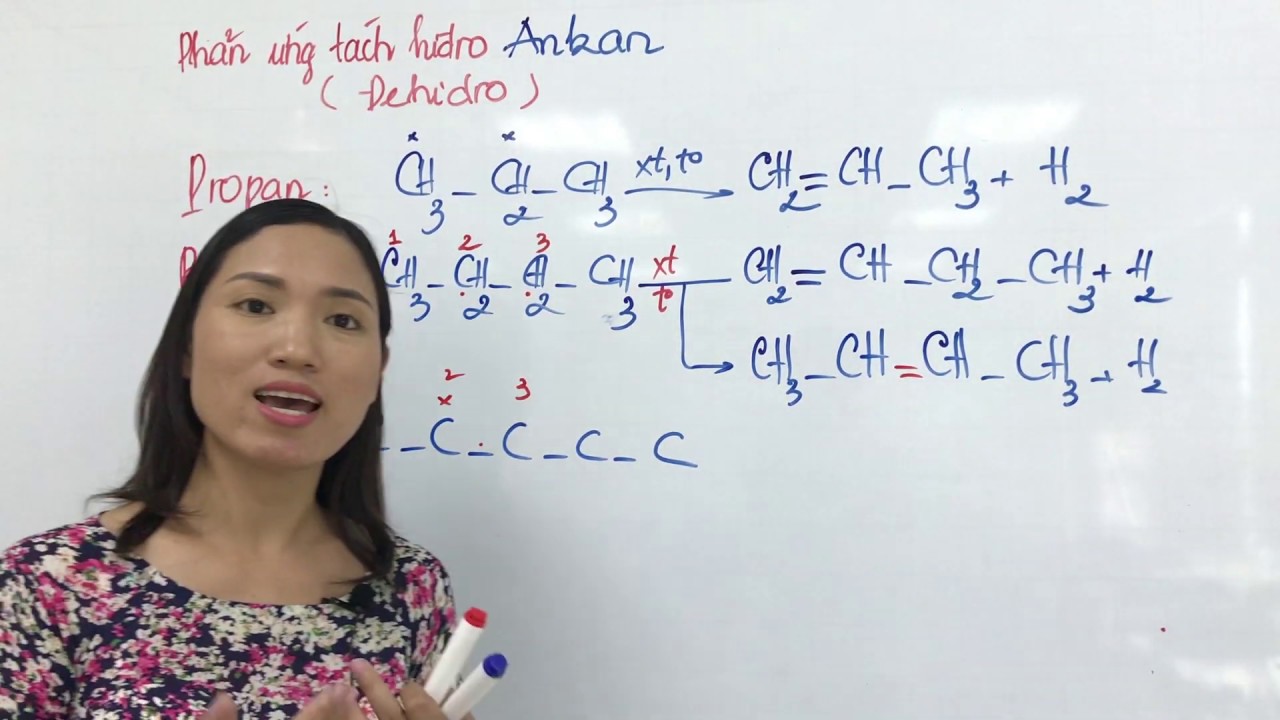 Phản ứng tách hiđro Ankan
( Đehidro )
Propan : CH3 - CH2 - CH3 xt, t° CH2 = CH - CH3 + H2
1 2 3
CH3 - CH2 - CH2 - CH3 xt t° CH2 = CH - CH2 - CH3 + H2
CH3 - CH = CH - CH3 + H2
2 3
- C - C - C - C